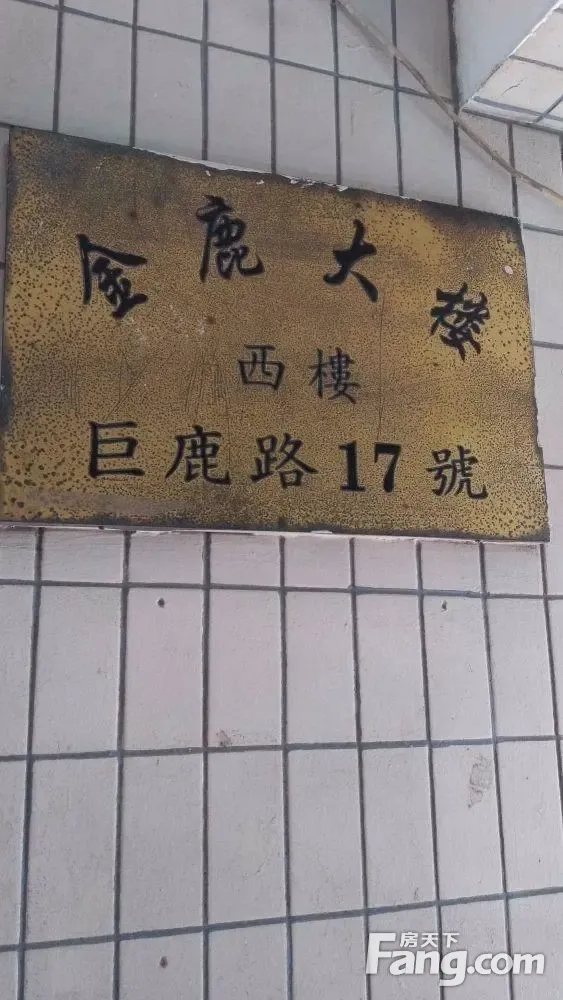 金鹿大楼
西樓
巨鹿路17號
房天下
Fang.com